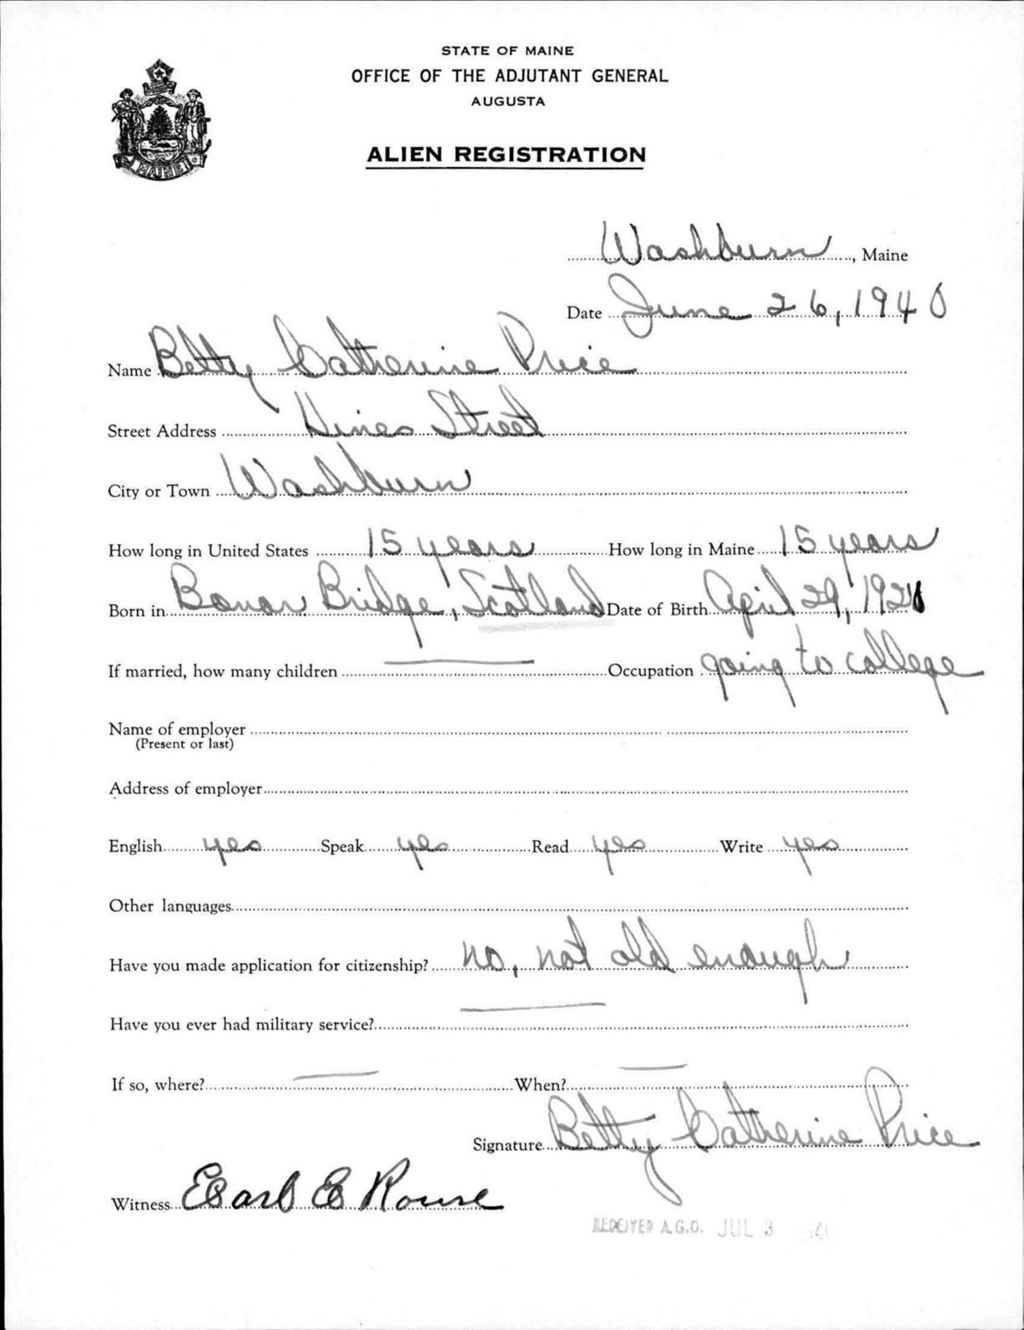 STATE OF MAINE
OFFICE OF THE ADJUTANT GENERAL
AUGUSTA
ALIEN REGISTRATION
MAINE
Washburn, Maine
Date June 26, 1940
Name Betty Catherine Price
Street Address Hines Street
City or Town Washburn
How long in United States 15 years How long in Maine 15 years
Born in Bonar Bridge, Scotland Date of Birth April 29,
If married, how many children — Occupation going to college
Name of employer
(Present or last)
Address of employer
English yes Speak yes Read yes Write yes
Other languages
Have you made application for citizenship? no, not old enough
Have you ever had military service? —
If so, where? — When? —
Signature Betty Catherine Price
Witness Earl E Rouse
RECEIVED A.G.O. JUL 3